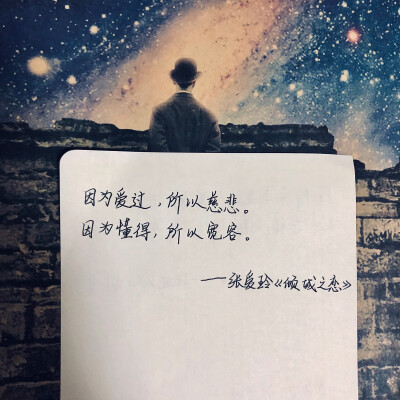 因为爱过，所以慈悲。
因为懂得，所以宽容。
——张爱玲《倾城之恋》